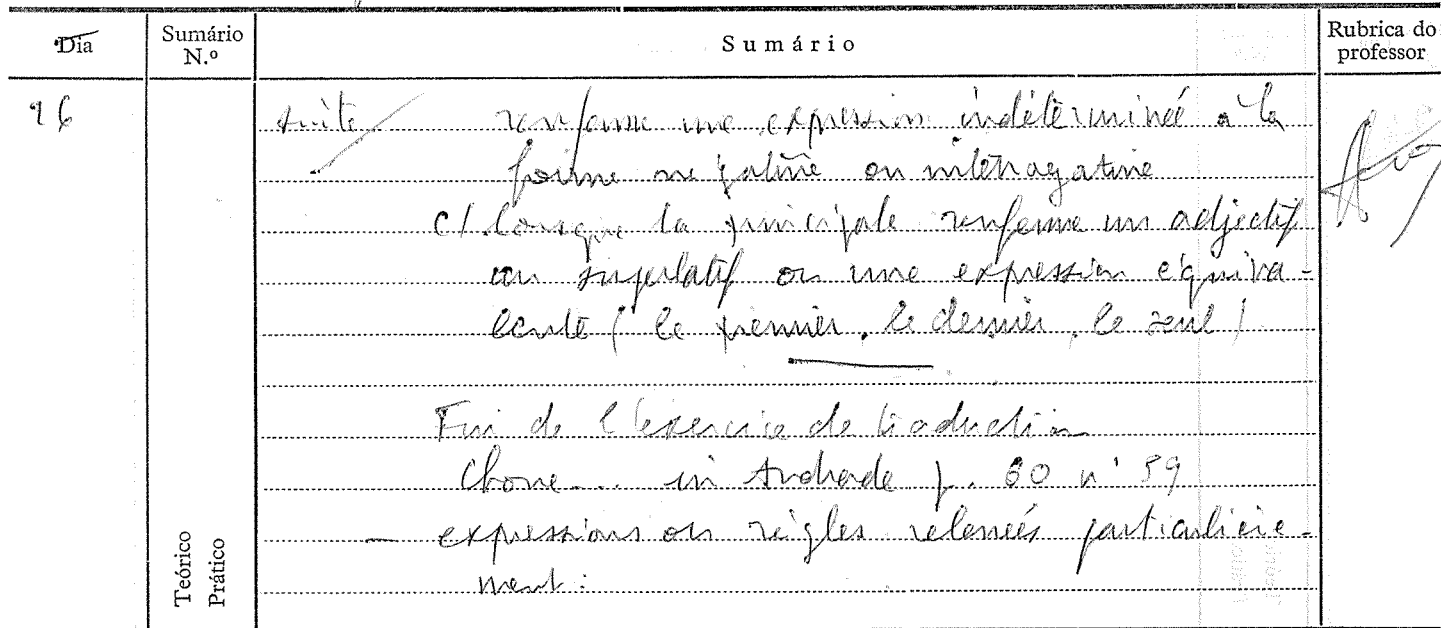 Dia
Sumário N.º
Sumário
Rubrica do professor
16
suite renferme une expression indéterminée a la
forme négative ou interrogative
c/ lorsque la principale renferme un adjectif
au superlatif ou une expression équiva-
lente ( le premier, le dernier, le seul )
Fin de l'exercice de traduction
in Andrade p. 60 n° 59
— expressions ou règles relevées particulière-
ment :
Teórico
Prático